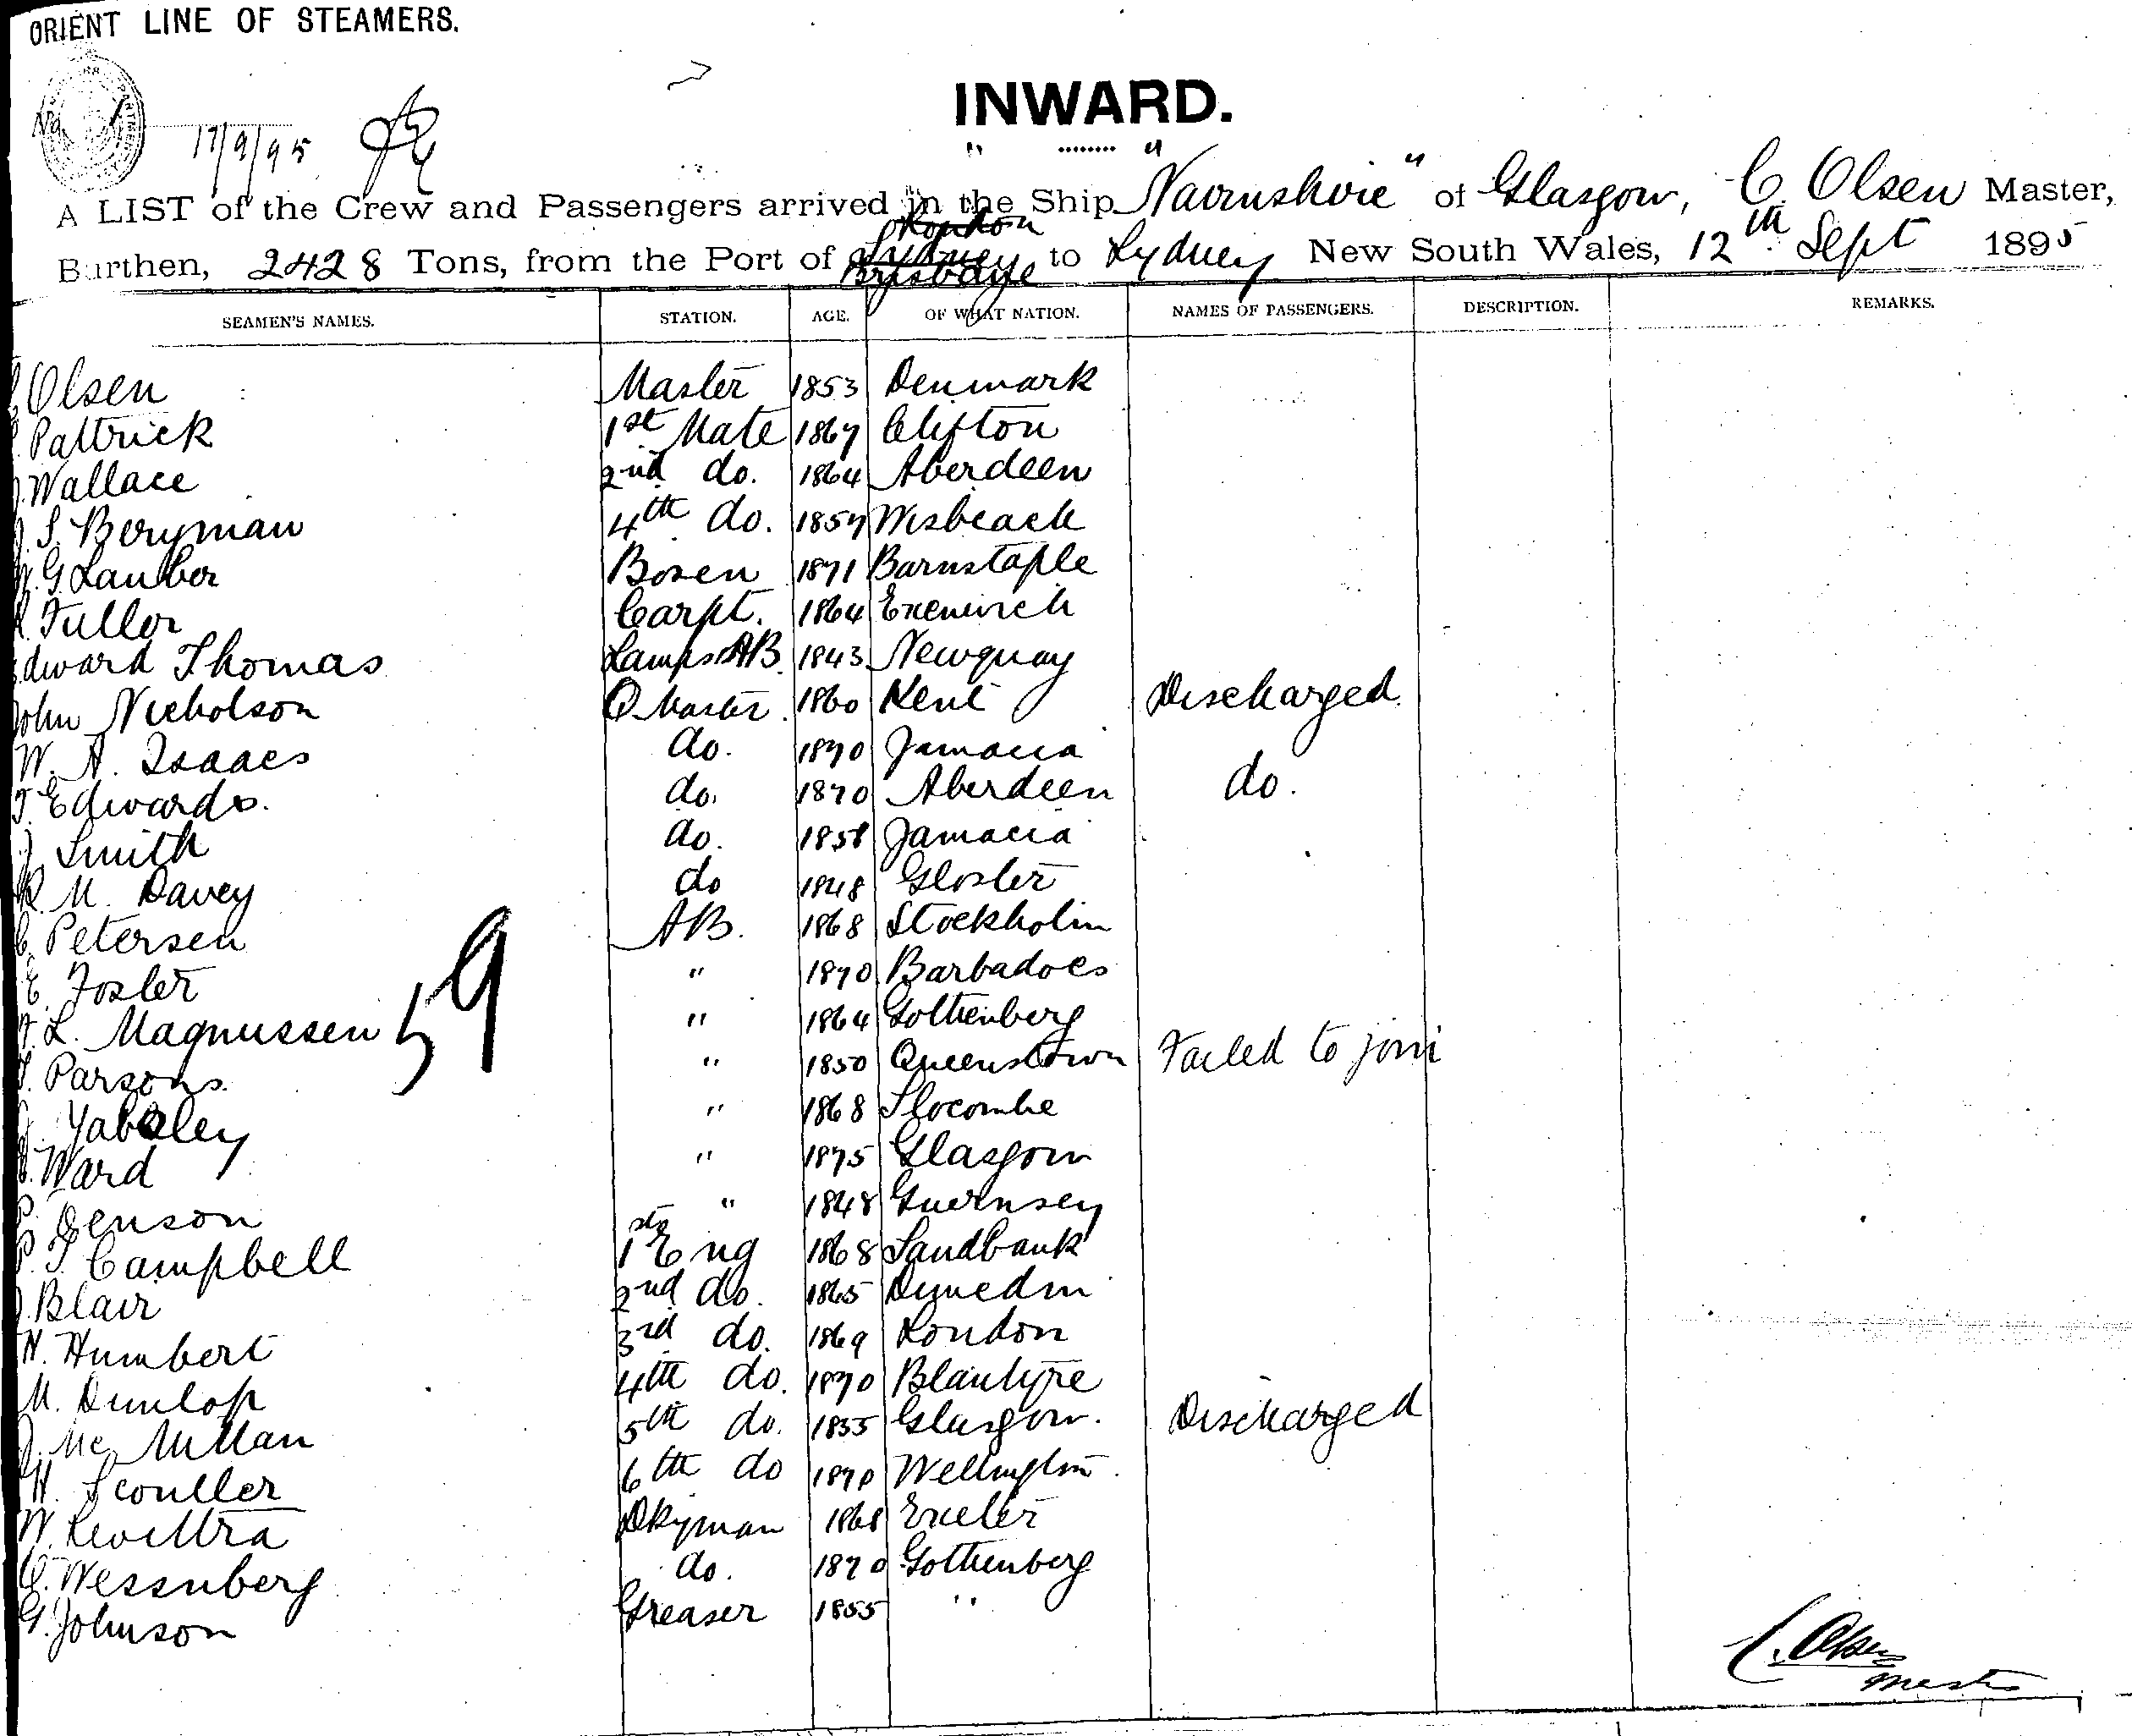 ORIENT LINE OF STEAMERS.
17/9/95
INWARD.
A LIST of the Crew and Passengers arrived in the Ship "Nairnshire" of Glasgow, C. Olsen Master,
London
Burthen, 2428 Tons, from the Port of Sydney Brisbane to Sydney New South Wales, 12th Sept 1895
SEAMEN'S NAMES. STATION. AGE. OF WHAT NATION. NAMES OF PASSENGERS. DESCRIPTION. REMARKS.
Olsen Master 1853 Denmark
Pattrick 1st Mate 1867 Clifton
Wallace 2nd do. 1864 Aberdeen
S. Beryman 4th do. 1857 Wisbeach
G. Lauber Bosen 1871 Barnstaple
Fuller Carpt. 1864
Edward Thomas Lamps AB 1843 Newquay
John Nicholson Q Master 1860 Kent Discharged
W. A. Isaacs do. 1870 Jamacia
T. Edwards. do. 1870 Aberdeen do.
J. Smith do. 1858 Jamacia
R. M. Davey do 1848 Gloster
C. Petersen AB. 1868 Stockholm
E. Foster " 1870 Barbadoes
L. Magnussen " 1864 Gothenberg
59
Parsons " 1850 Queenstown Failed to join
Yabsley " 1868 Slocombe
Ward " 1875 Glasgow
P. Jenson " 1848 Guernsey
P. T. Campbell 1st Eng 1868 Sandbank
J. Blair 2nd do. 1865 Dunedin
H. Humbert 3rd do. 1869 London
M. Dunlop 4th do. 1870 Blantyre
J. Mc Millan 5th do. 1855 Glasgow. Discharged
H. Scouller 6th do 1870 Wellington
W. Dkyman 1868 Exeter
Wessnberg do. 1870 Gothenberg
G. Johnson Greaser 1855 "
C. Olsen
Master